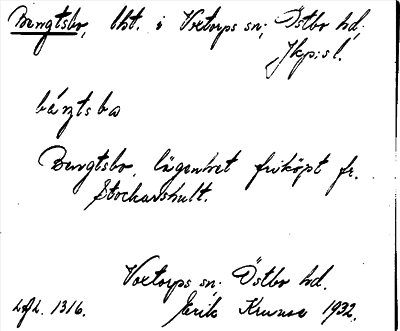 Bengtsbo, lht. i Voxtorps sn; Östbo hd;
Jkp:s l.
bá ŋtsbω
Bengtsbo, lägenhet friköpt fr.
Stockarshult.
Voxtorps sn; Östbo hd.
Erik Kruuse 1932.